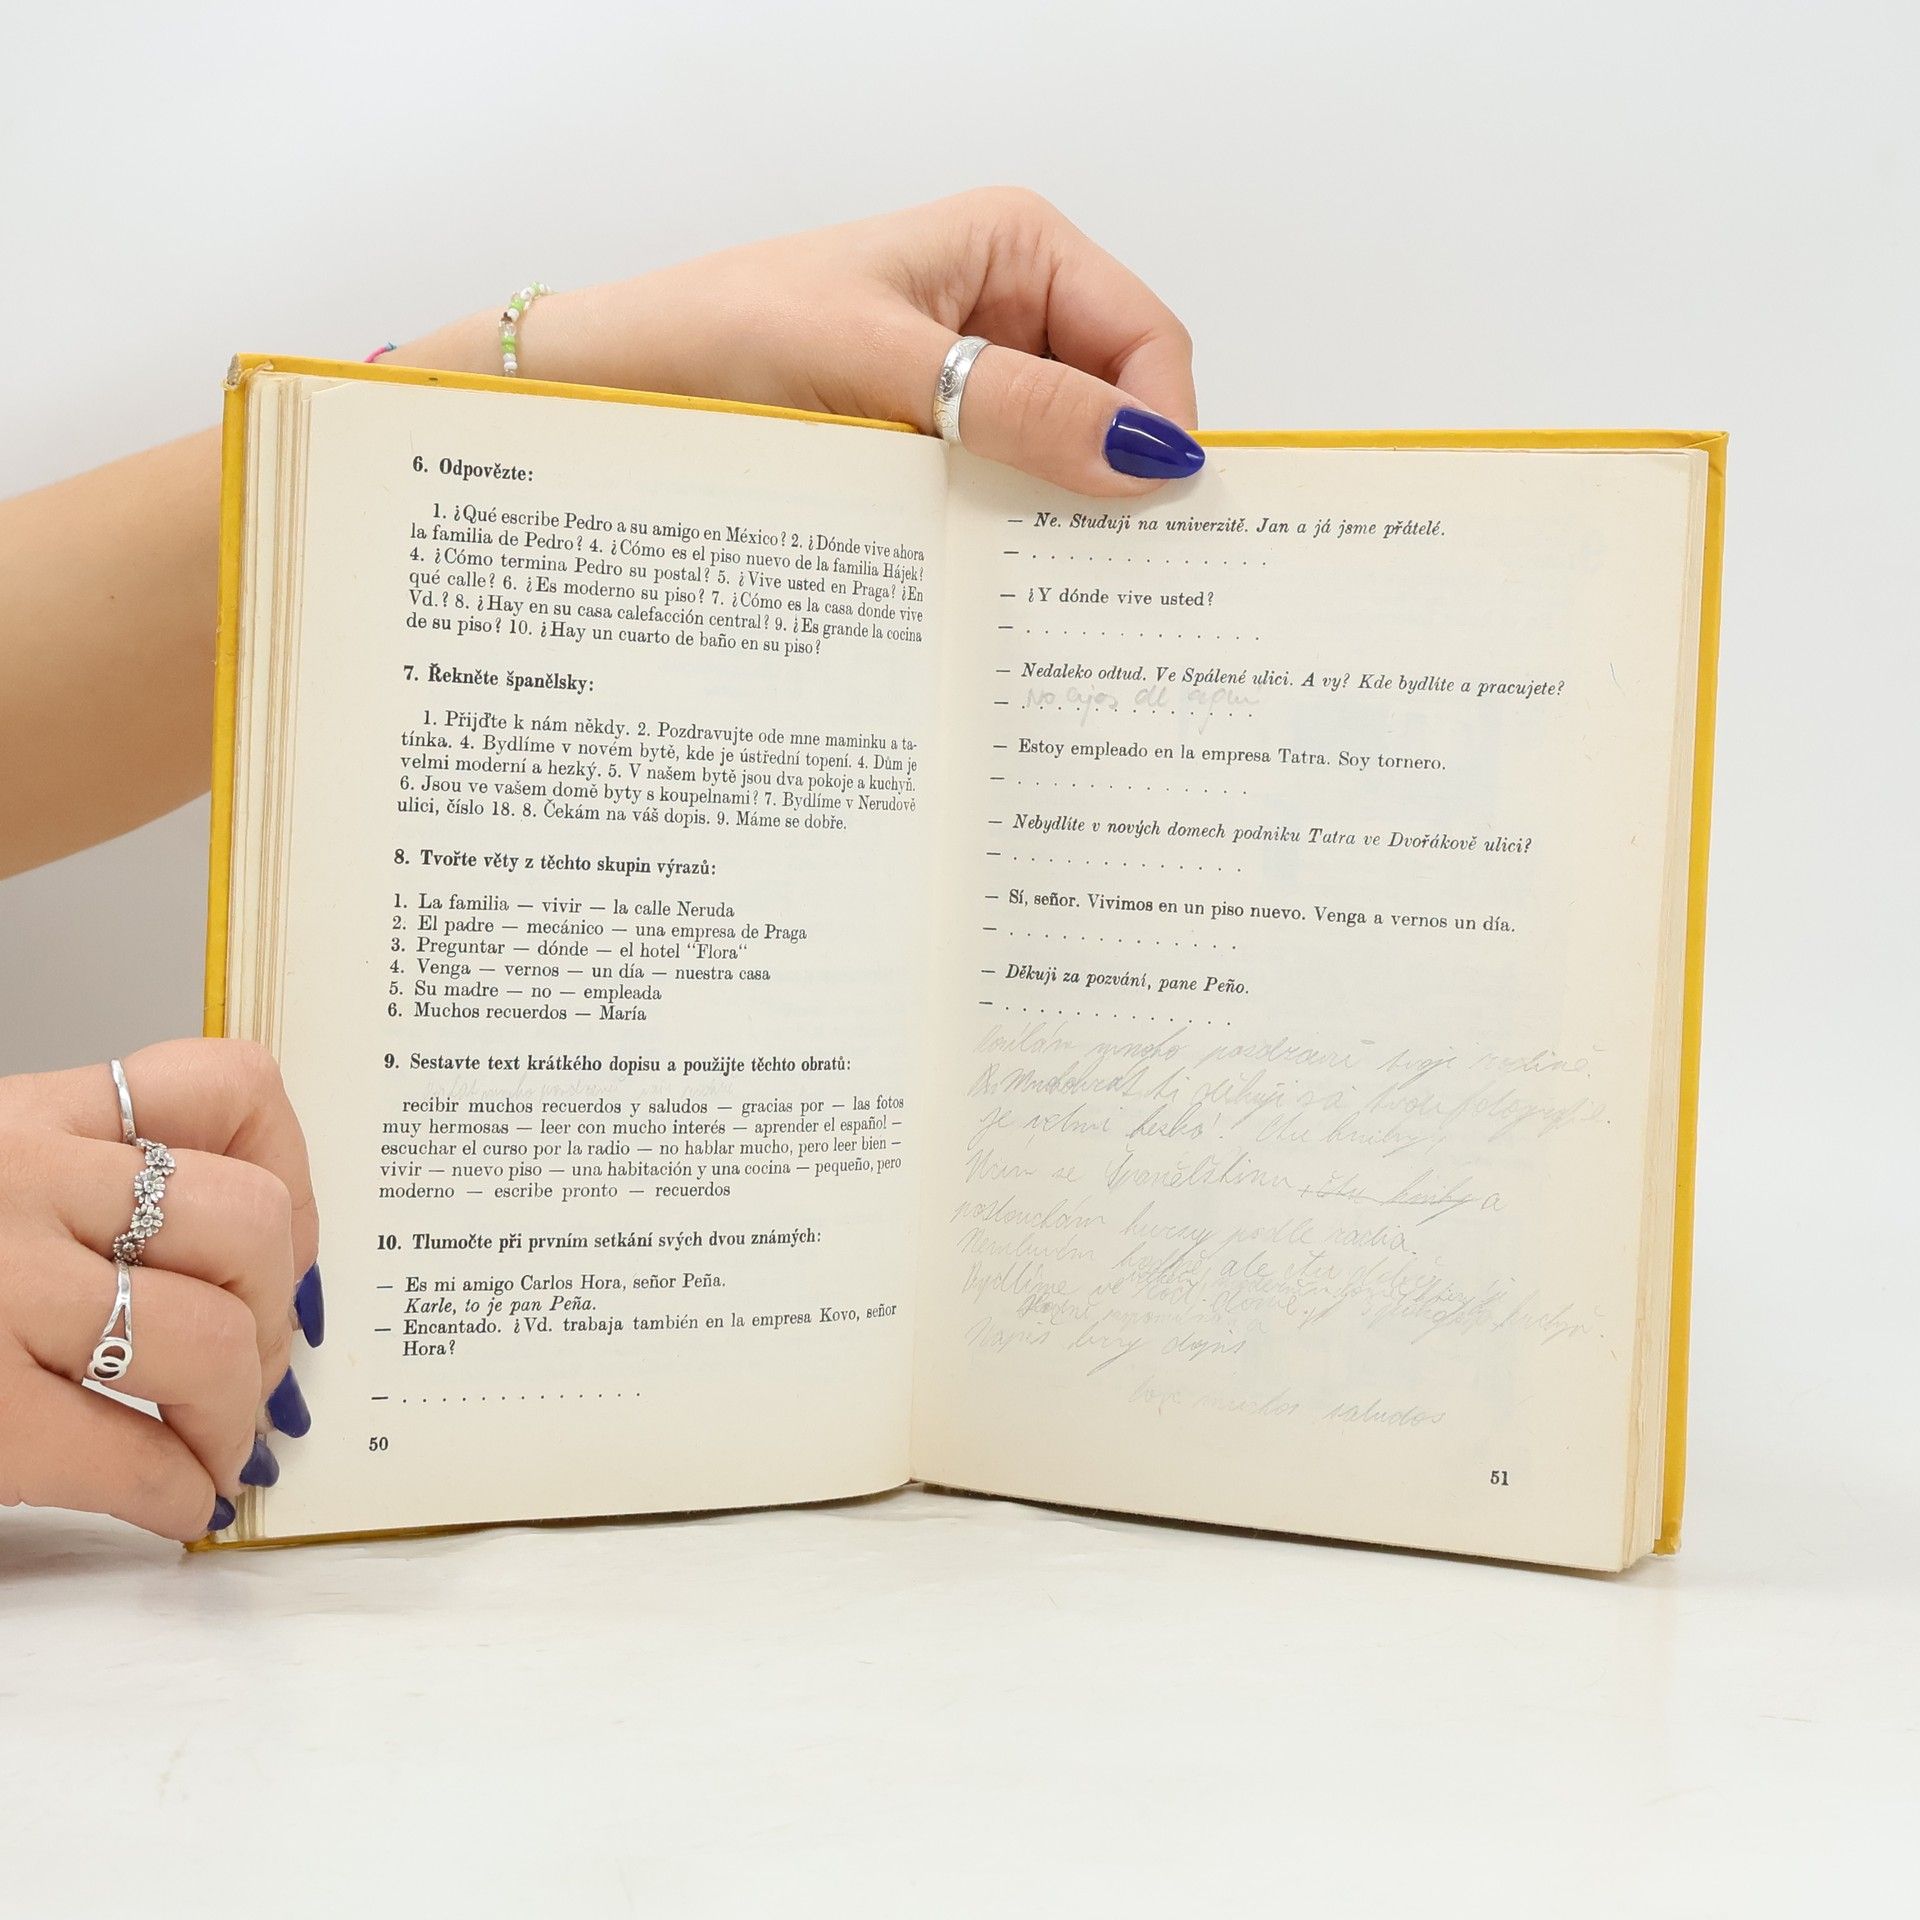 6. Odpovězte:
1. ¿Qué escribe Pedro a su amigo en México? 2. ¿Dónde vive ahora
la familia de Pedro? 4. ¿Cómo es el piso nuevo de la familia Hájek?
4. ¿Cómo termina Pedro su postal? 5. ¿Vive usted en Praga? ¿En
qué calle? 6. ¿Es moderno su piso? 7. ¿Cómo es la casa donde vive
Vd.? 8. ¿Hay en su casa calefacción central? 9. ¿Es grande la cocina
de su piso? 10. ¿Hay un cuarto de baño en su piso?
7. Řekněte španělsky:
1. Přijďte k nám někdy. 2. Pozdravujte ode mne maminku a ta-
tínka. 4. Bydlíme v novém bytě, kde je ústřední topení. 4. Dům je
velmi moderní a hezký. 5. V našem bytě jsou dva pokoje a kuchyň.
6. Jsou ve vašem domě byty s koupelnami? 7. Bydlíme v Nerudově
ulici, číslo 18. 8. Čekám na váš dopis. 9. Máme se dobře.
8. Tvořte věty z těchto skupin výrazů:
1. La familia — vivir — la calle Neruda
2. El padre — mecánico — una empresa de Praga
3. Preguntar — dónde — el hotel “Flora“
4. Venga — vernos — un día — nuestra casa
5. Su madre — no — empleada
6. Muchos recuerdos — María
9. Sestavte text krátkého dopisu a použijte těchto obratů:
recibir muchos recuerdos y saludos — gracias por — las fotos
muy hermosas — leer con mucho interés — aprender el español —
escuchar el curso por la radio — no hablar mucho, pero leer bien —
vivir — nuevo piso — una habitación y una cocina — pequeño, pero
moderno — escribe pronto — recuerdos
10. Tlumočte při prvním setkání svých dvou známých:
— Es mi amigo Carlos Hora, señor Peña.
Karle, to je pan Peña.
— Encantado. ¿Vd. trabaja también en la empresa Kovo, señor
Hora?
— . . . . . . . . . . . . . .
50
— Ne. Studuji na univerzitě. Jan a já jsme přátelé.
— . . . . . . . . . . . . .
— ¿Y dónde vive usted?
— . . . . . . . . . . . . .
— Nedaleko odtud. Ve Spálené ulici. A vy? Kde bydlíte a pracujete?
— . . . . . . . . . . . . .
— Estoy empleado en la empresa Tatra. Soy tornero.
— . . . . . . . . . . . . .
— Nebydlíte v nových domech podniku Tatra ve Dvořákově ulici?
— . . . . . . . . . . . . .
— Sí, señor. Vivimos en un piso nuevo. Venga a vernos un día.
— . . . . . . . . . . . . .
— Děkuji za pozvání, pane Peño.
— . . . . . . . . . . . . .
je velmi
se španělštinu a
poslouchám kurzy podle radia.
ale čtu dobře
Bydlíme ve
Napiš brzy dopis
muchos saludos
51